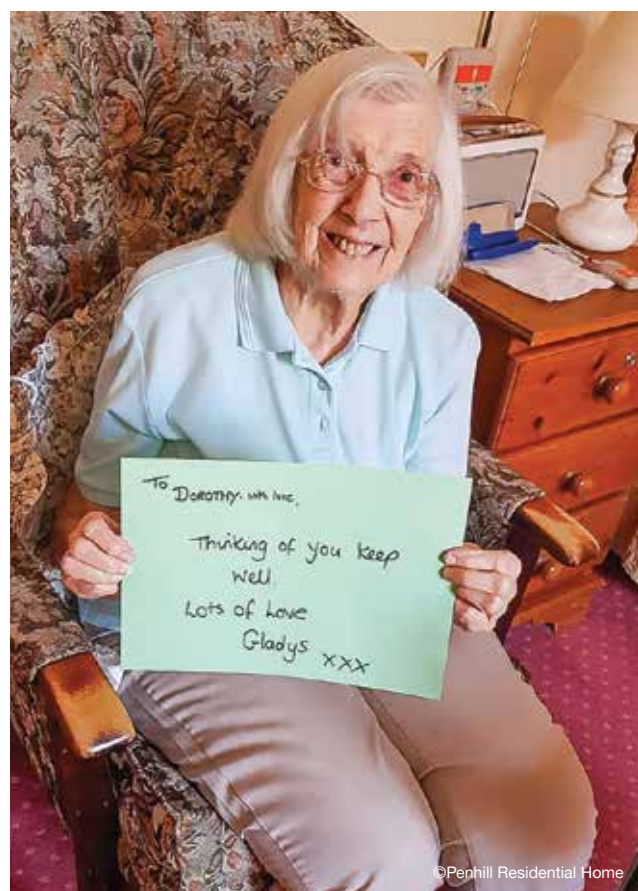 To DOROTHY. with love,
Thinking of you keep
well
Lots of Love
Gladys xxx
©Penhill Residential Home